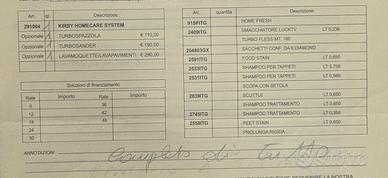 Art. q. Descrizione
291004 1 KIRBY HOMECARE SYSTEM
Opzionale TURBOSPAZZOLA € 110,00
Opzionale TURBOSANDER € 190,00
Opzionale LAVAMOQUETTE/LAVAPAVIMENTI € 290,00
Soluzioni di finanziamento
Rate Importo Rate Importo
6 36
12 42
18 48
24
30
Art. quantità Descrizione
915FITG HOME FRESH
2409ITG SMACCHIATORE LUCKTV LT 0,236
TURBO FLESS MT. 180
204803GX SACCHETTI CONF. DA 6 DIAMOND
2591ITG FOOD STAIN LT 0,650
2533ITG SHAMPOO PER TAPPETI LT 3,758
2531ITG SHAMPOO PER TAPPETI LT 0,946
SCOPA CON SETOLA
2839ITG SCUTTLE LT 0,650
SHAMPOO TRATTAMENTO LT 0,650
2745ITG SHAMPOO TRATTAMENTO LT 0,366
2558ITG PEET STAIN LT 0,650
PROLUNGA RIGIDA
ANNOTAZIONI Completo di